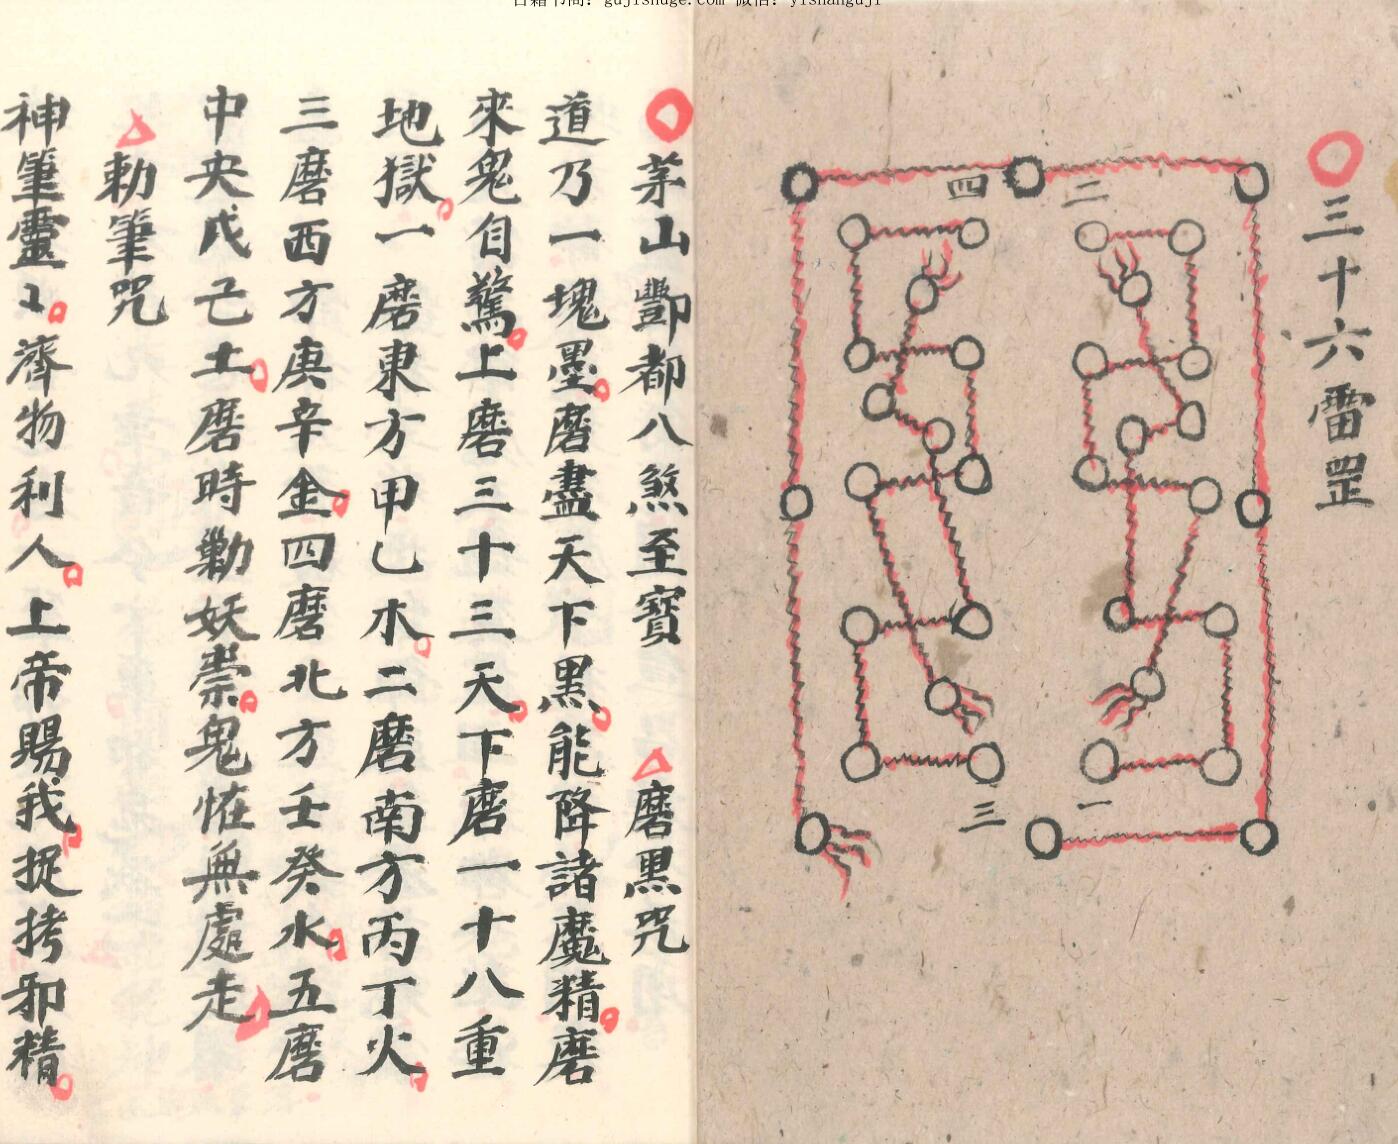 三十六雷罡
二
四
一
三
茅山酆都八煞至寶
磨黑咒
道乃一塊墨磨盡天下黑能降諸魔精磨
來鬼自驚上磨三十三天下磨一十八重
地獄一磨東方甲乙木二磨南方丙丁火
三磨西方庚辛金四磨北方壬癸水五磨
中央戊己土磨時勦妖祟鬼恠無處走
勅筆咒
神筆靈〻濟物利人上帝賜我捉拷邪精